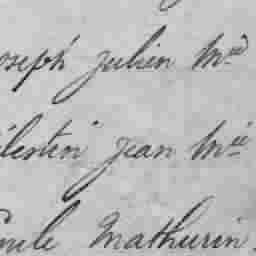 oseph julien Mie
lestin jean Mie
mile Mathurin